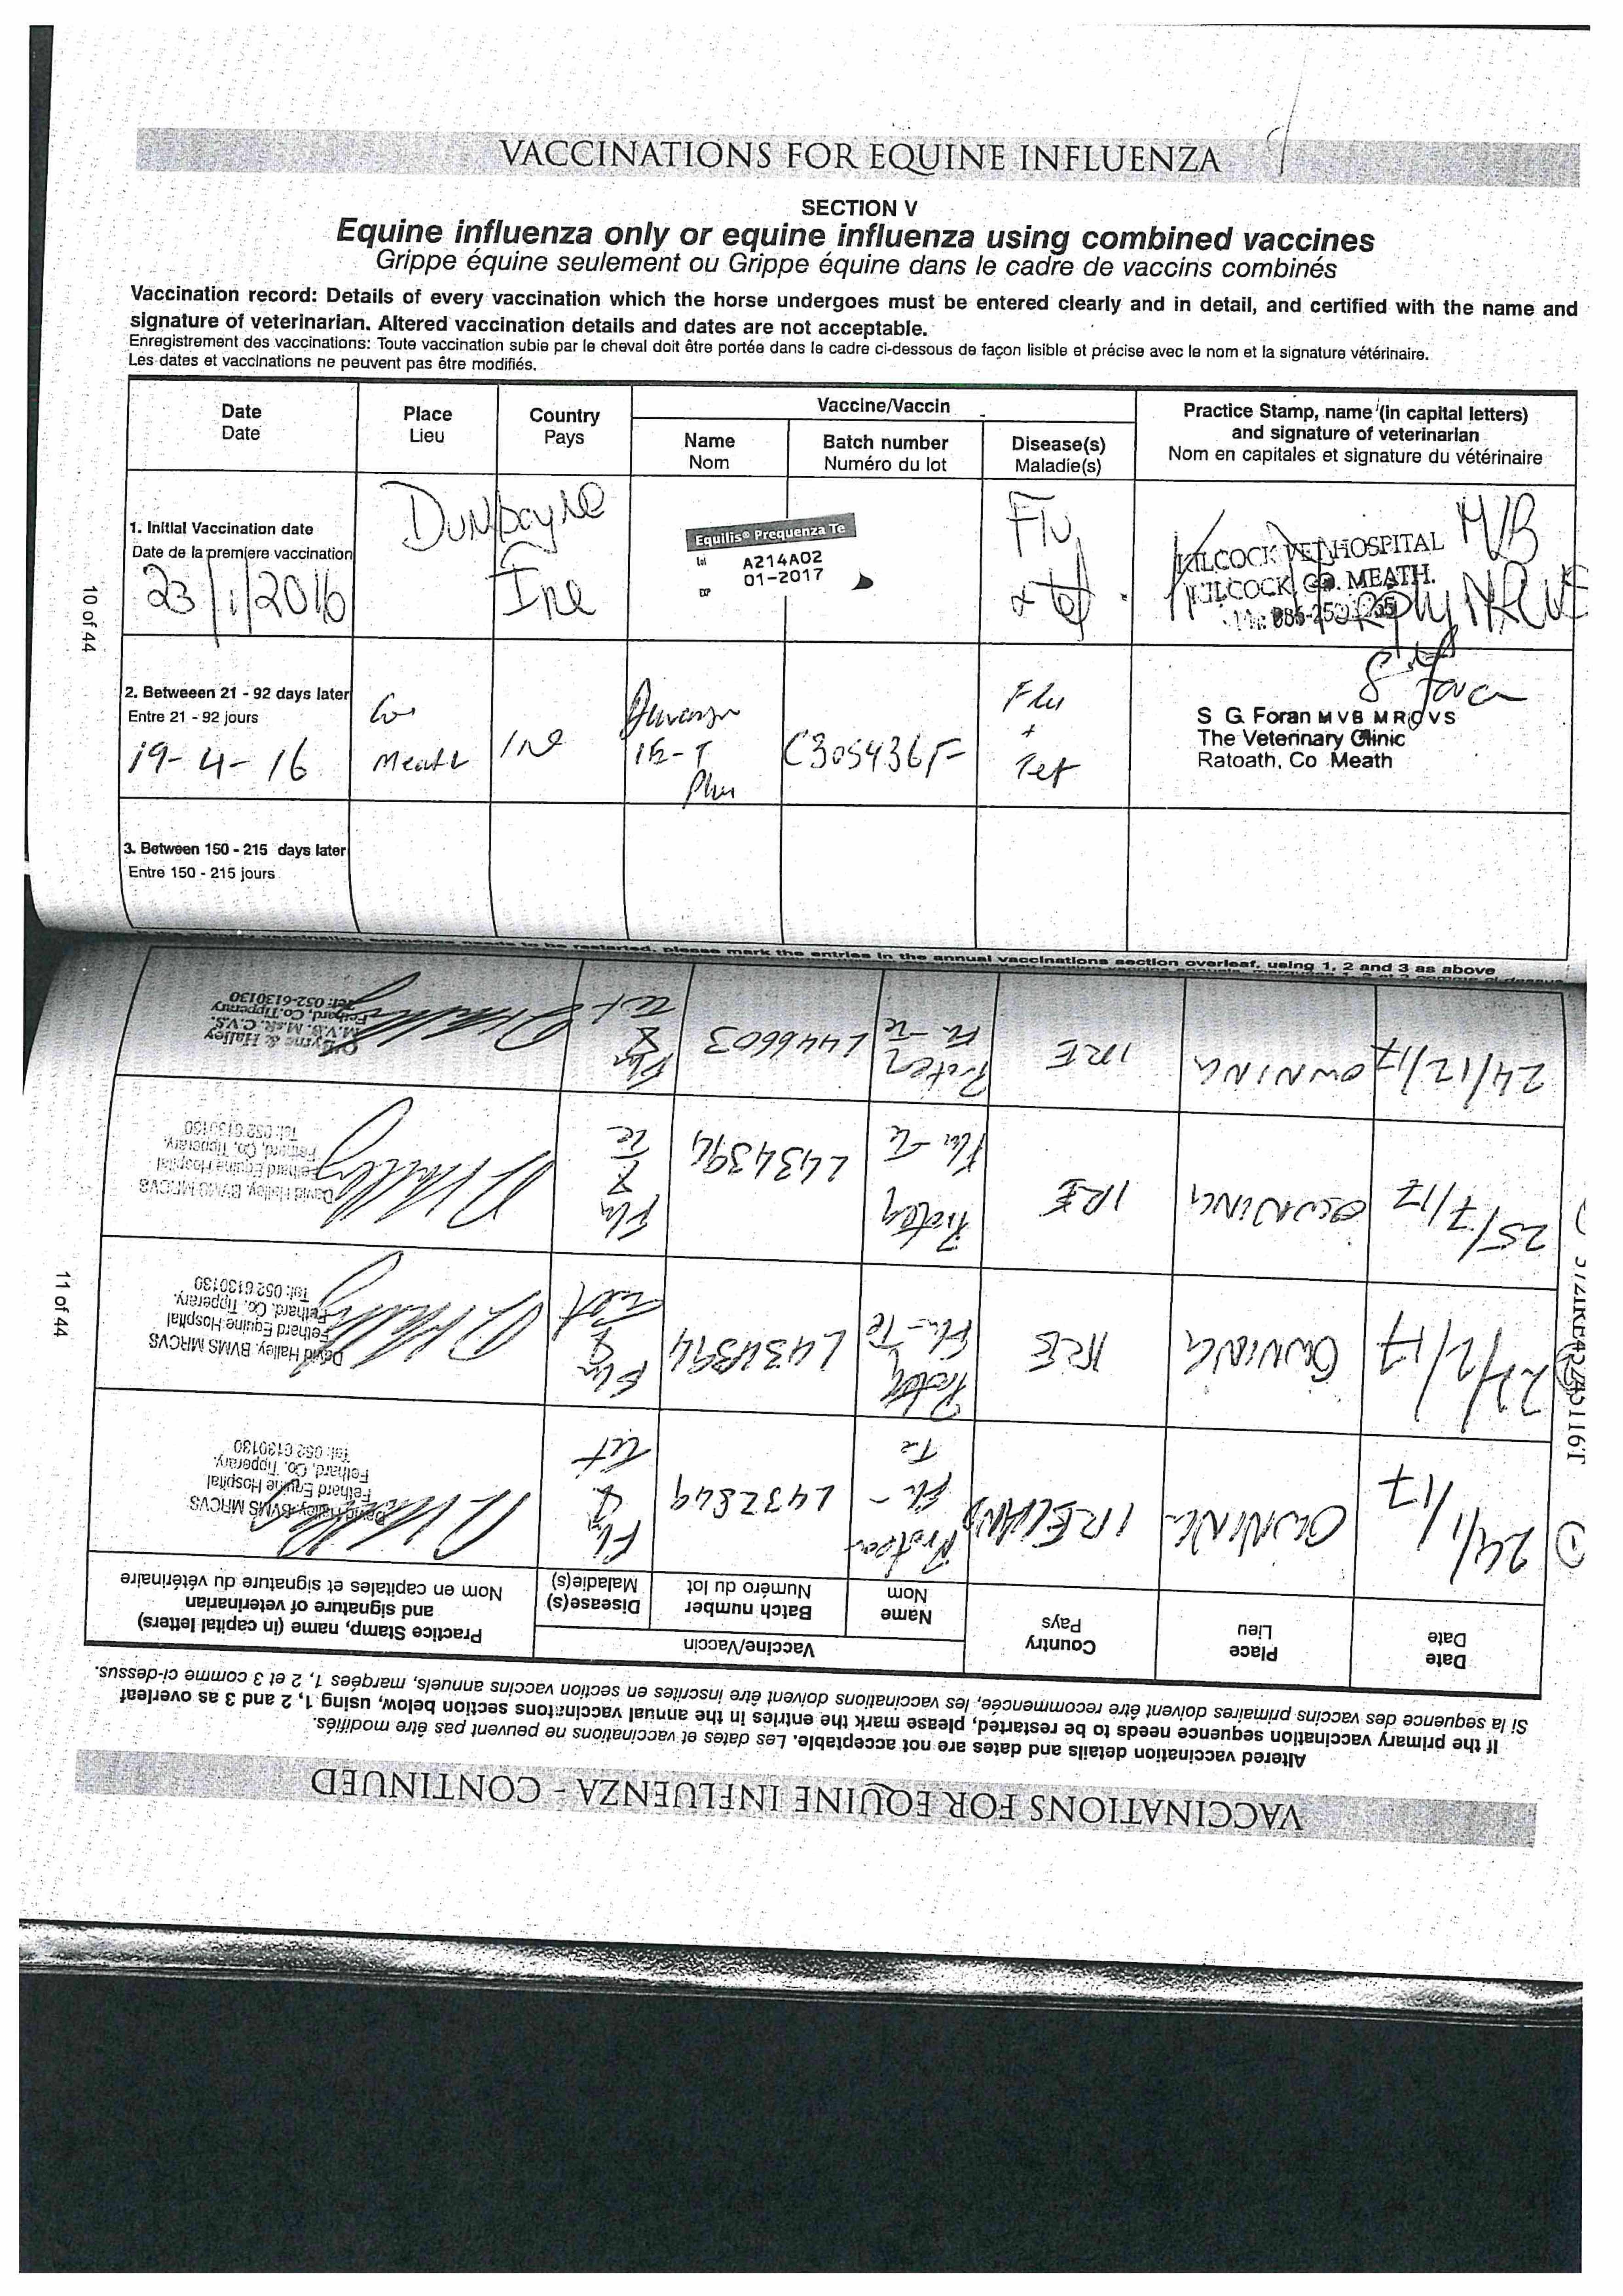 VACCINATIONS FOR EQUINE INFLUENZA
SECTION V
Equine influenza only or equine influenza using combined vaccines
Grippe équine seulement ou Grippe équine dans le cadre de vaccins combinés
Vaccination record: Details of every vaccination which the horse undergoes must be entered clearly and in detail, and certified with the name and
signature of veterinarian. Altered vaccination details and dates are not acceptable.
Enregistrement des vaccinations: Toute vaccination subie par le cheval doit être portée dans le cadre ci-dessous de façon lisible et précise avec le nom et la signature vétérinaire.
Les dates et vaccinations ne peuvent pas être modifiés.
Date
Date
Place
Lieu
Country
Pays
Vaccine/Vaccin
Name
Nom
Batch number
Numéro du lot
Disease(s)
Maladie(s)
Practice Stamp, name (in capital letters)
and signature of veterinarian
Nom en capitales et signature du vétérinaire
1. Initial Vaccination date
Date de la premiere vaccination
23/1/2016
Dunboyne
Ire
Equilis® Prequenza Te
Lot A214A02
EXP 01-2017
Flu
+ tet
MVB
KILCOCK VET HOSPITAL
KILCOCK, CO. MEATH.
MRCVS
2. Betweeen 21 - 92 days later
Entre 21 - 92 jours
19-4-16
Co
Meath
Ire
Duvaxyn
IE-T
Plus
C305436F
Flu
+
Tet
S G Foran MVB MRCVS
The Veterinary Clinic
Ratoath, Co Meath
3. Between 150 - 215 days later
Entre 150 - 215 jours
10 of 44
to be restarted, please mark the entries in the annual vaccinations section overleaf, using 1, 2 and 3 as above
VACCINATIONS FOR EQUINE INFLUENZA - CONTINUED
Altered vaccination details and dates are not acceptable. Les dates et vaccinations ne peuvent pas être modifiés.
If the primary vaccination sequence needs to be restarted, please mark the entries in the annual vaccinatons section below, using 1, 2 and 3 as overleaf
Si la sequence des vaccins primaires doivent être recommencée, les vaccinations doivent être inscrites en section vaccins annuels, marqées 1, 2 et 3 comme ci-dessus.
Date
Date
Place
Lieu
Country
Pays
Vaccine/Vaccin
Name
Nom
Batch number
Numéro du lot
Disease(s)
Maladie(s)
Practice Stamp, name (in capital letters)
and signature of veterinarian
Nom en capitales et signature du vétérinaire
1
24/1/17
OWNING
IRELAND
Proteq
Flu -
Te
L432849
Flu
&
tet
David Halley, BVMS MRCVS
Fethard Equine Hospital
Fethard, Co. Tipperary.
Tel: 052 6130130
OWNING
IRE
Proteq
Flu-Te
Flu
&
tet
David Halley, BVMS MRCVS
Fethard Equine Hospital
Fethard, Co. Tipperary.
Tel: 052 6130130
25/7/17
OWNING
IRE
Proteq
Flu-Te
L434394
Flu
&
Te
David Halley, BVMS MRCVS
Fethard Equine Hospital
Fethard, Co. Tipperary.
Tel: 052 6130130
24/12/17
OWNING
IRE
Proteq
Flu-Te
L446603
Flu
&
tet
O'Byrne & Halley
M.V.B. M.R.C.V.S.
Fethard, Co. Tipperary
Tel: 052-6130130
11 of 44